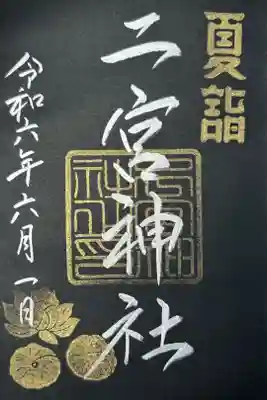 夏詣
二宮神社
令和六年六月一日